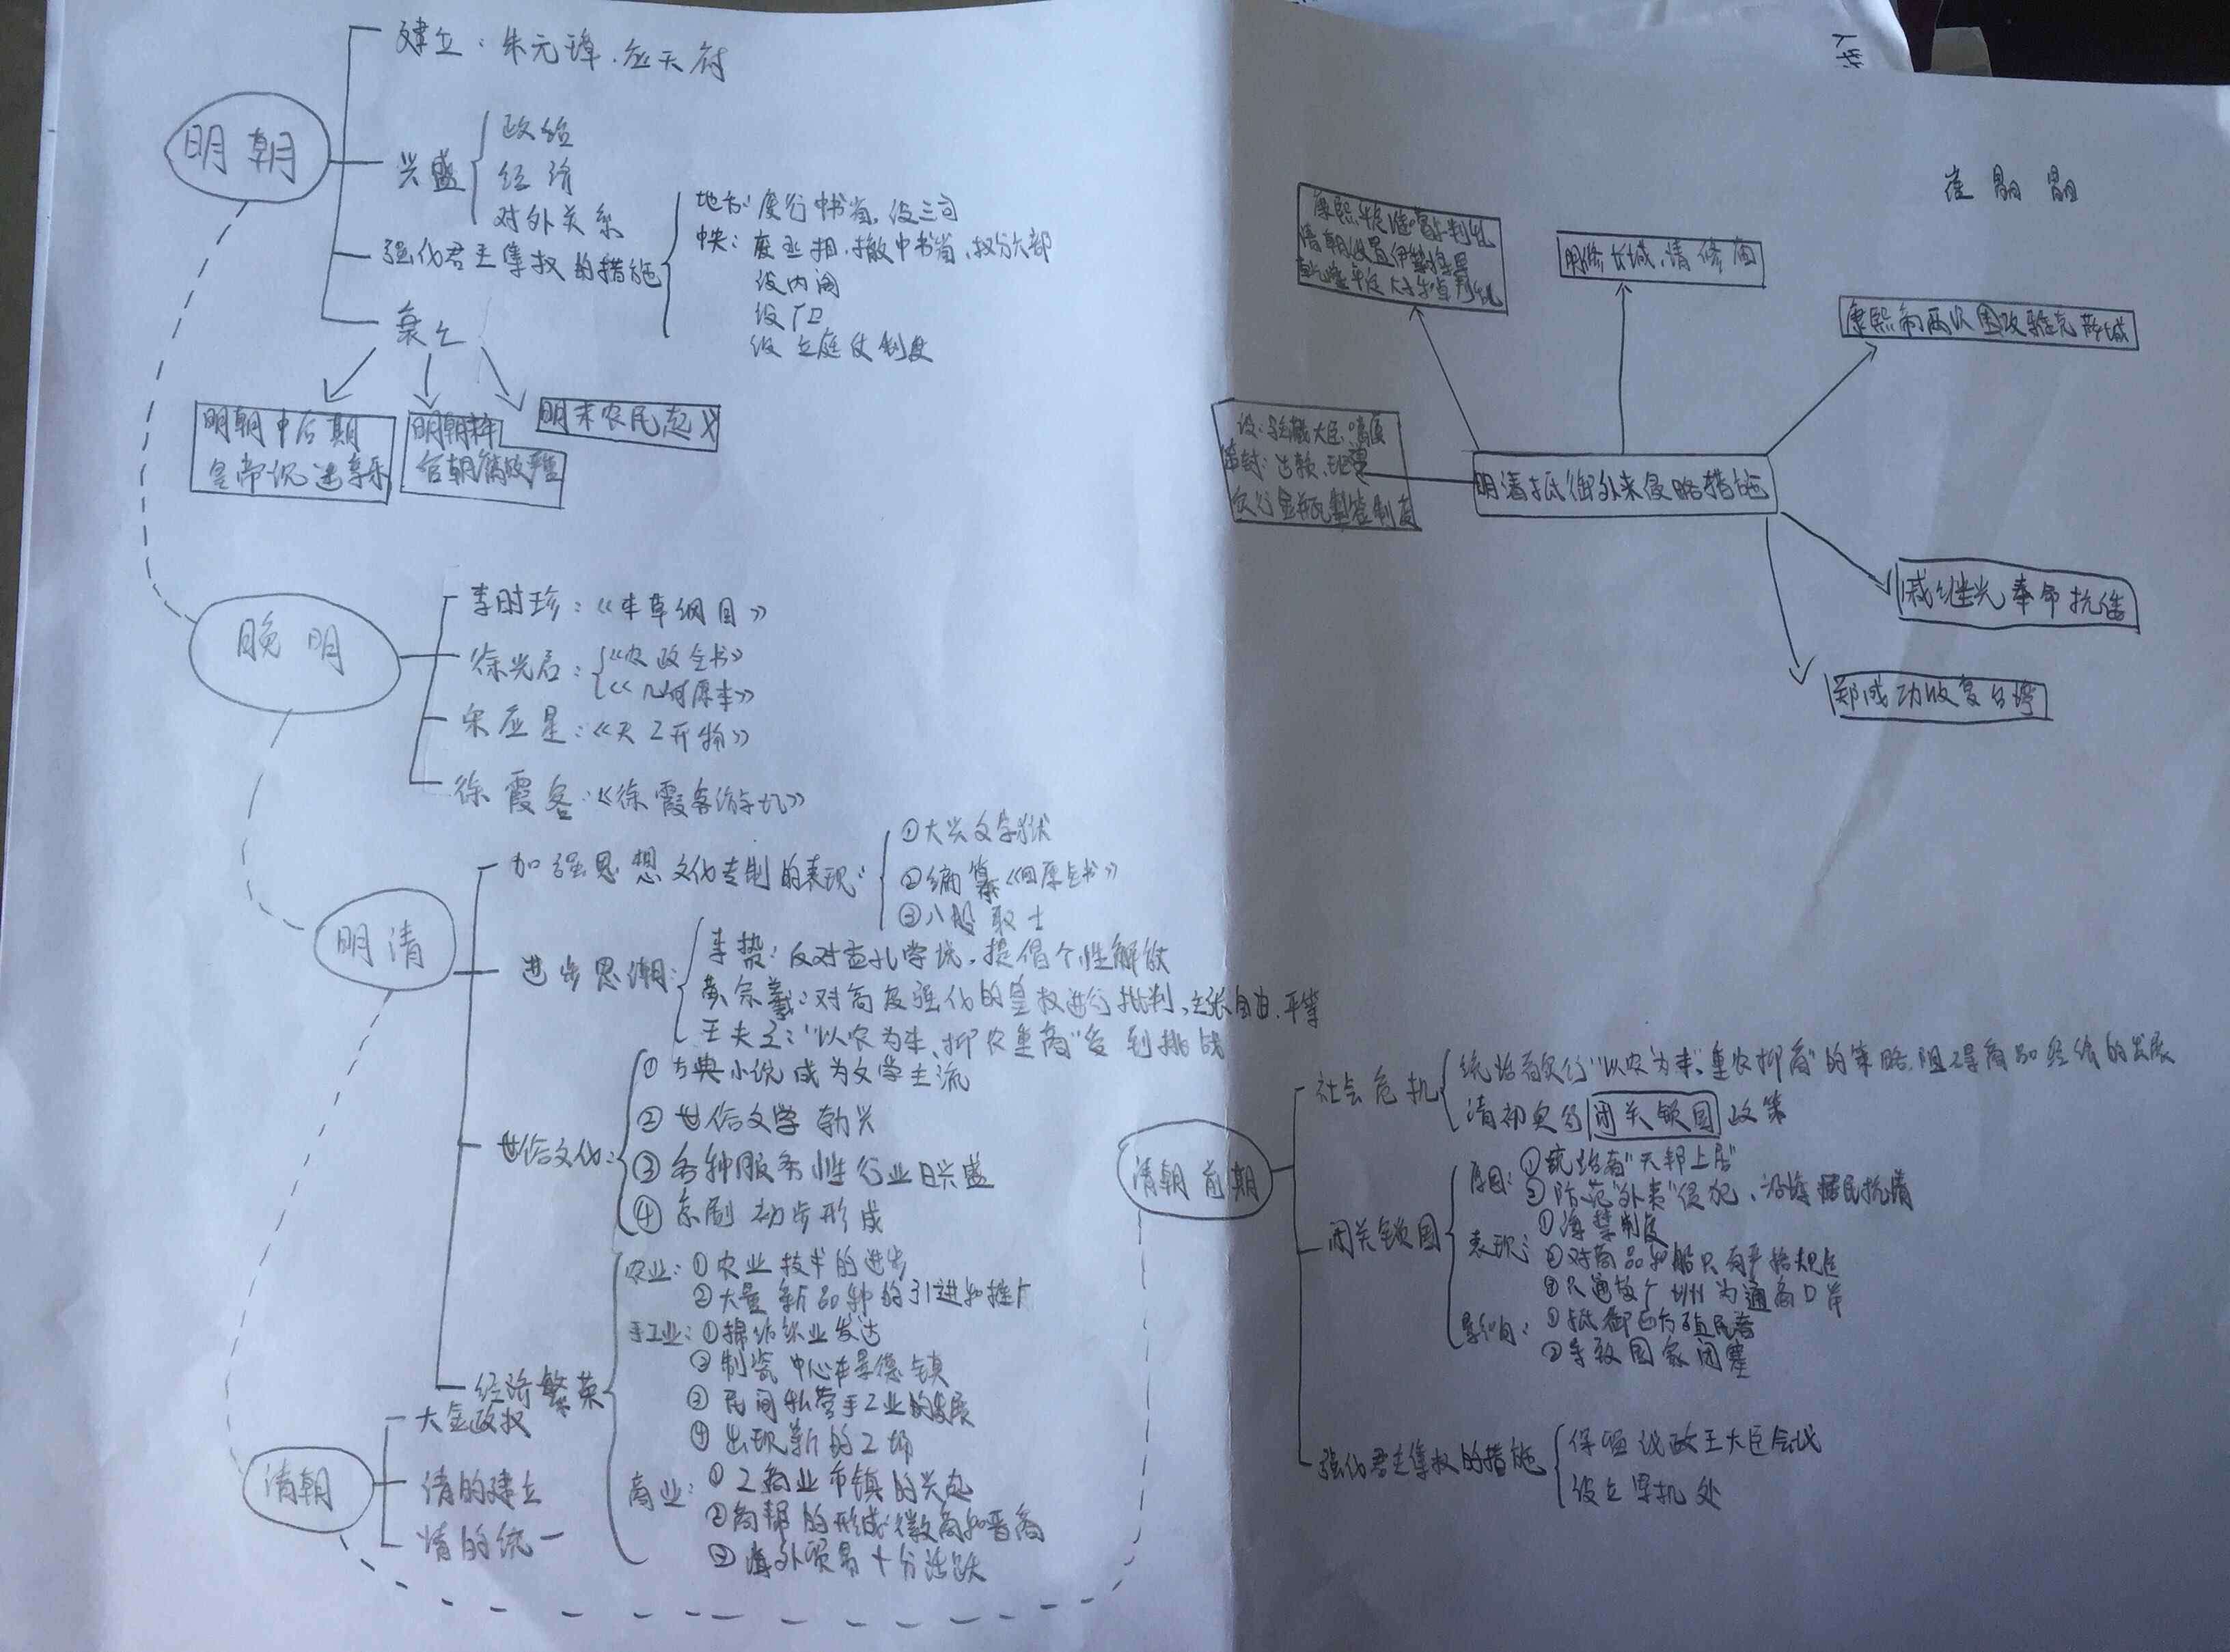 明朝
建立：朱元璋.应天府
兴盛
政治
经济
对外关系
强化君主集权的措施
地方：废行中书省，设三司
中央：废丞相，撤中书省，权分六部
设内阁
设厂卫
设立庭仗制度
衰亡
明朝中后期
皇帝沉迷享乐
明朝末年
官朝腐败严重
明末农民起义
晚明
李时珍：《本草纲目》
徐光启：
《农政全书》
《几何原本》
宋应星：《天工开物》
徐霞客：《徐霞客游记》
明清
加强思想文化专制的表现：
①大兴文字狱
②编纂《四库全书》
③八股取士
进步思潮：
李贽：反对孟孔学说，提倡个性解放
黄宗羲：对高度强化的皇权进行批判，主张自由.平等
王夫之："以农为本、抑农重商"受到挑战
世俗文化：
①古典小说成为文学主流
②世俗文学勃兴
③各种服务性行业日兴盛
④京剧初步形成
经济繁荣
农业：①农业技术的进步
②大量新品种的引进和推广
手工业：①棉纺织业发达
②制瓷中心在景德镇
③民间私营手工业的发展
④出现新的工场
商业：①工商业市镇的兴起
②商帮的形成：徽商和晋商
③海外贸易十分活跃
清朝
大金政权
清的建立
清的统一
崔
明清抵御外来侵略措施
康熙平定准噶尔判乱
清朝设置伊犁将军
乾隆平定大小和卓判乱
明修长城，清修庙
康熙帝两次围攻雅克萨城
设：驻藏大臣
册封：达赖、班禅
实行金瓶掣签制度
戚继光奉命抗倭
郑成功收复台湾
清朝前期
社会危机
统治者实行"以农为本、重农抑商"的策略，阻碍商品经济的发展
清初实行闭关锁国政策
闭关锁国
原因：①统治者"天邦上居"
②防范"外来"侵犯、沿海居民抗清
表现：①海禁制度
②对商品和船只有严格规定
③只通放广州为通商口岸
影响：①抵御西方殖民者
②导致国家闭塞
强化君主集权的措施
保留议政王大臣会议
设立军机处